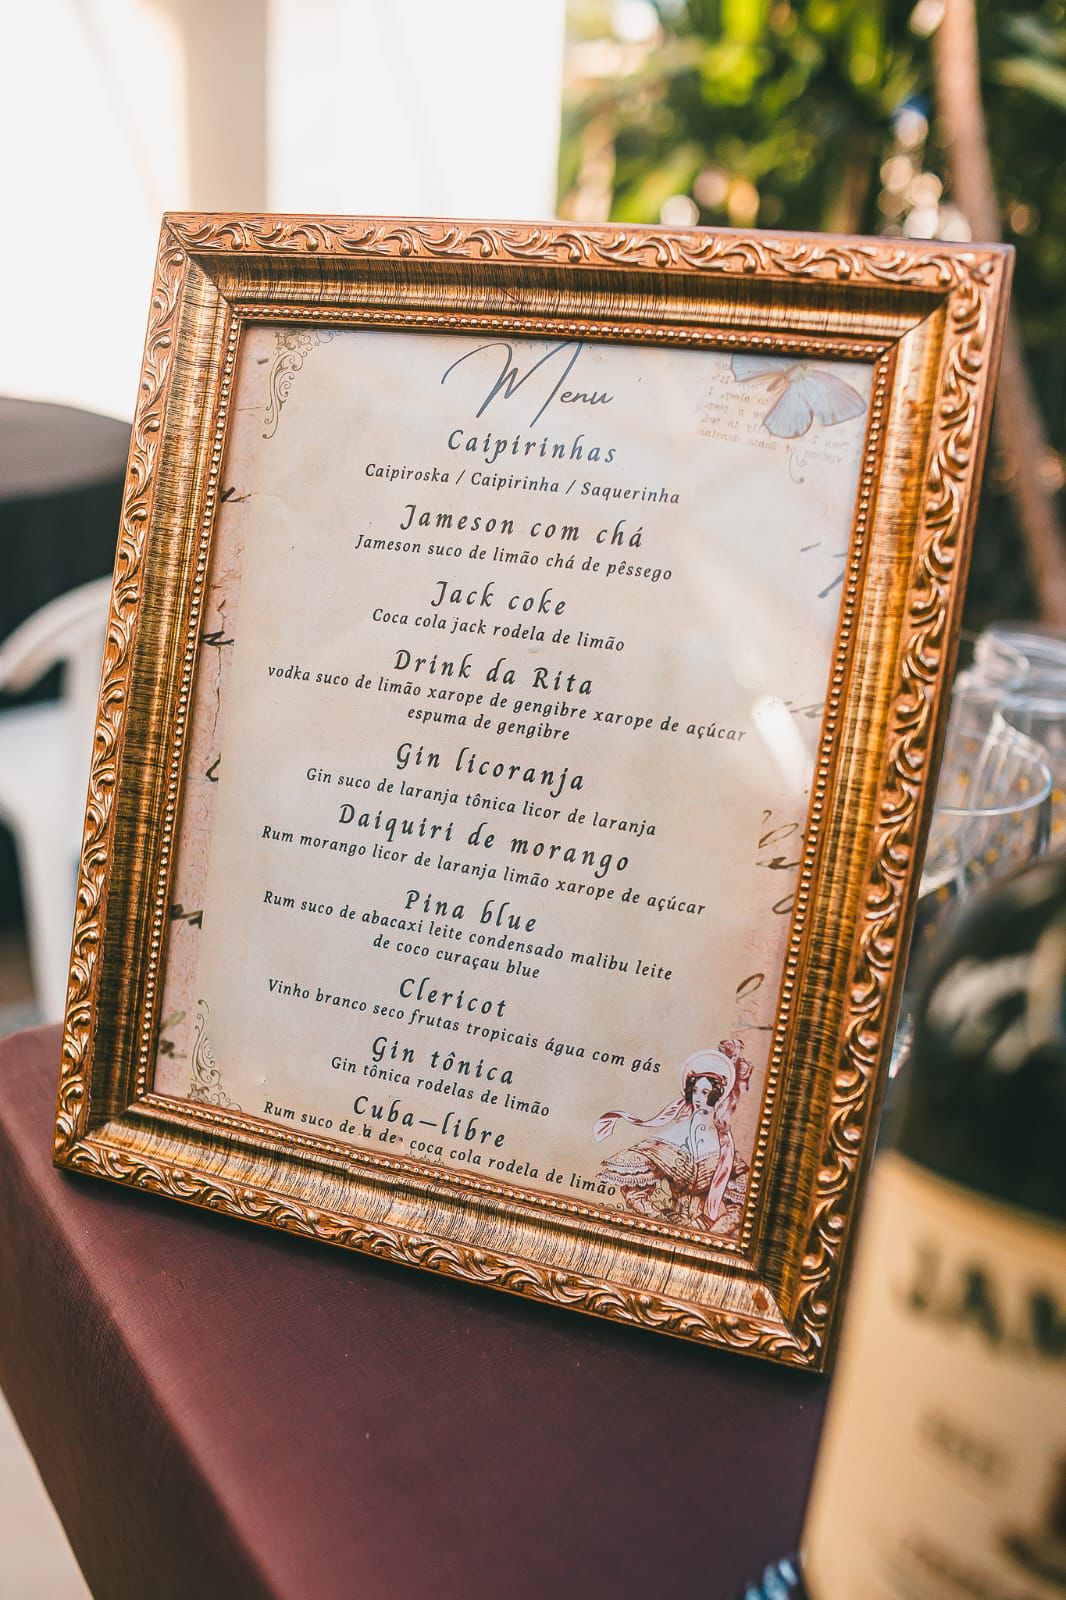 Menu
Caipirinhas
Caipiroska / Caipirinha / Saquerinha
Jameson com chá
Jameson suco de limão chá de pêssego
Jack coke
Coca cola jack rodela de limão
Drink da Rita
vodka suco de limão xarope de gengibre xarope de açúcar
espuma de gengibre
Gin licoranja
Gin suco de laranja tônica licor de laranja
Daiquiri de morango
Rum morango licor de laranja limão xarope de açúcar
Pina blue
Rum suco de abacaxi leite condensado malibu leite
de coco curaçau blue
Clericot
Vinho branco seco frutas tropicais água com gás
Gin tônica
Gin tônica rodelas de limão
Cuba-libre
Rum suco de coca cola rodela de limão